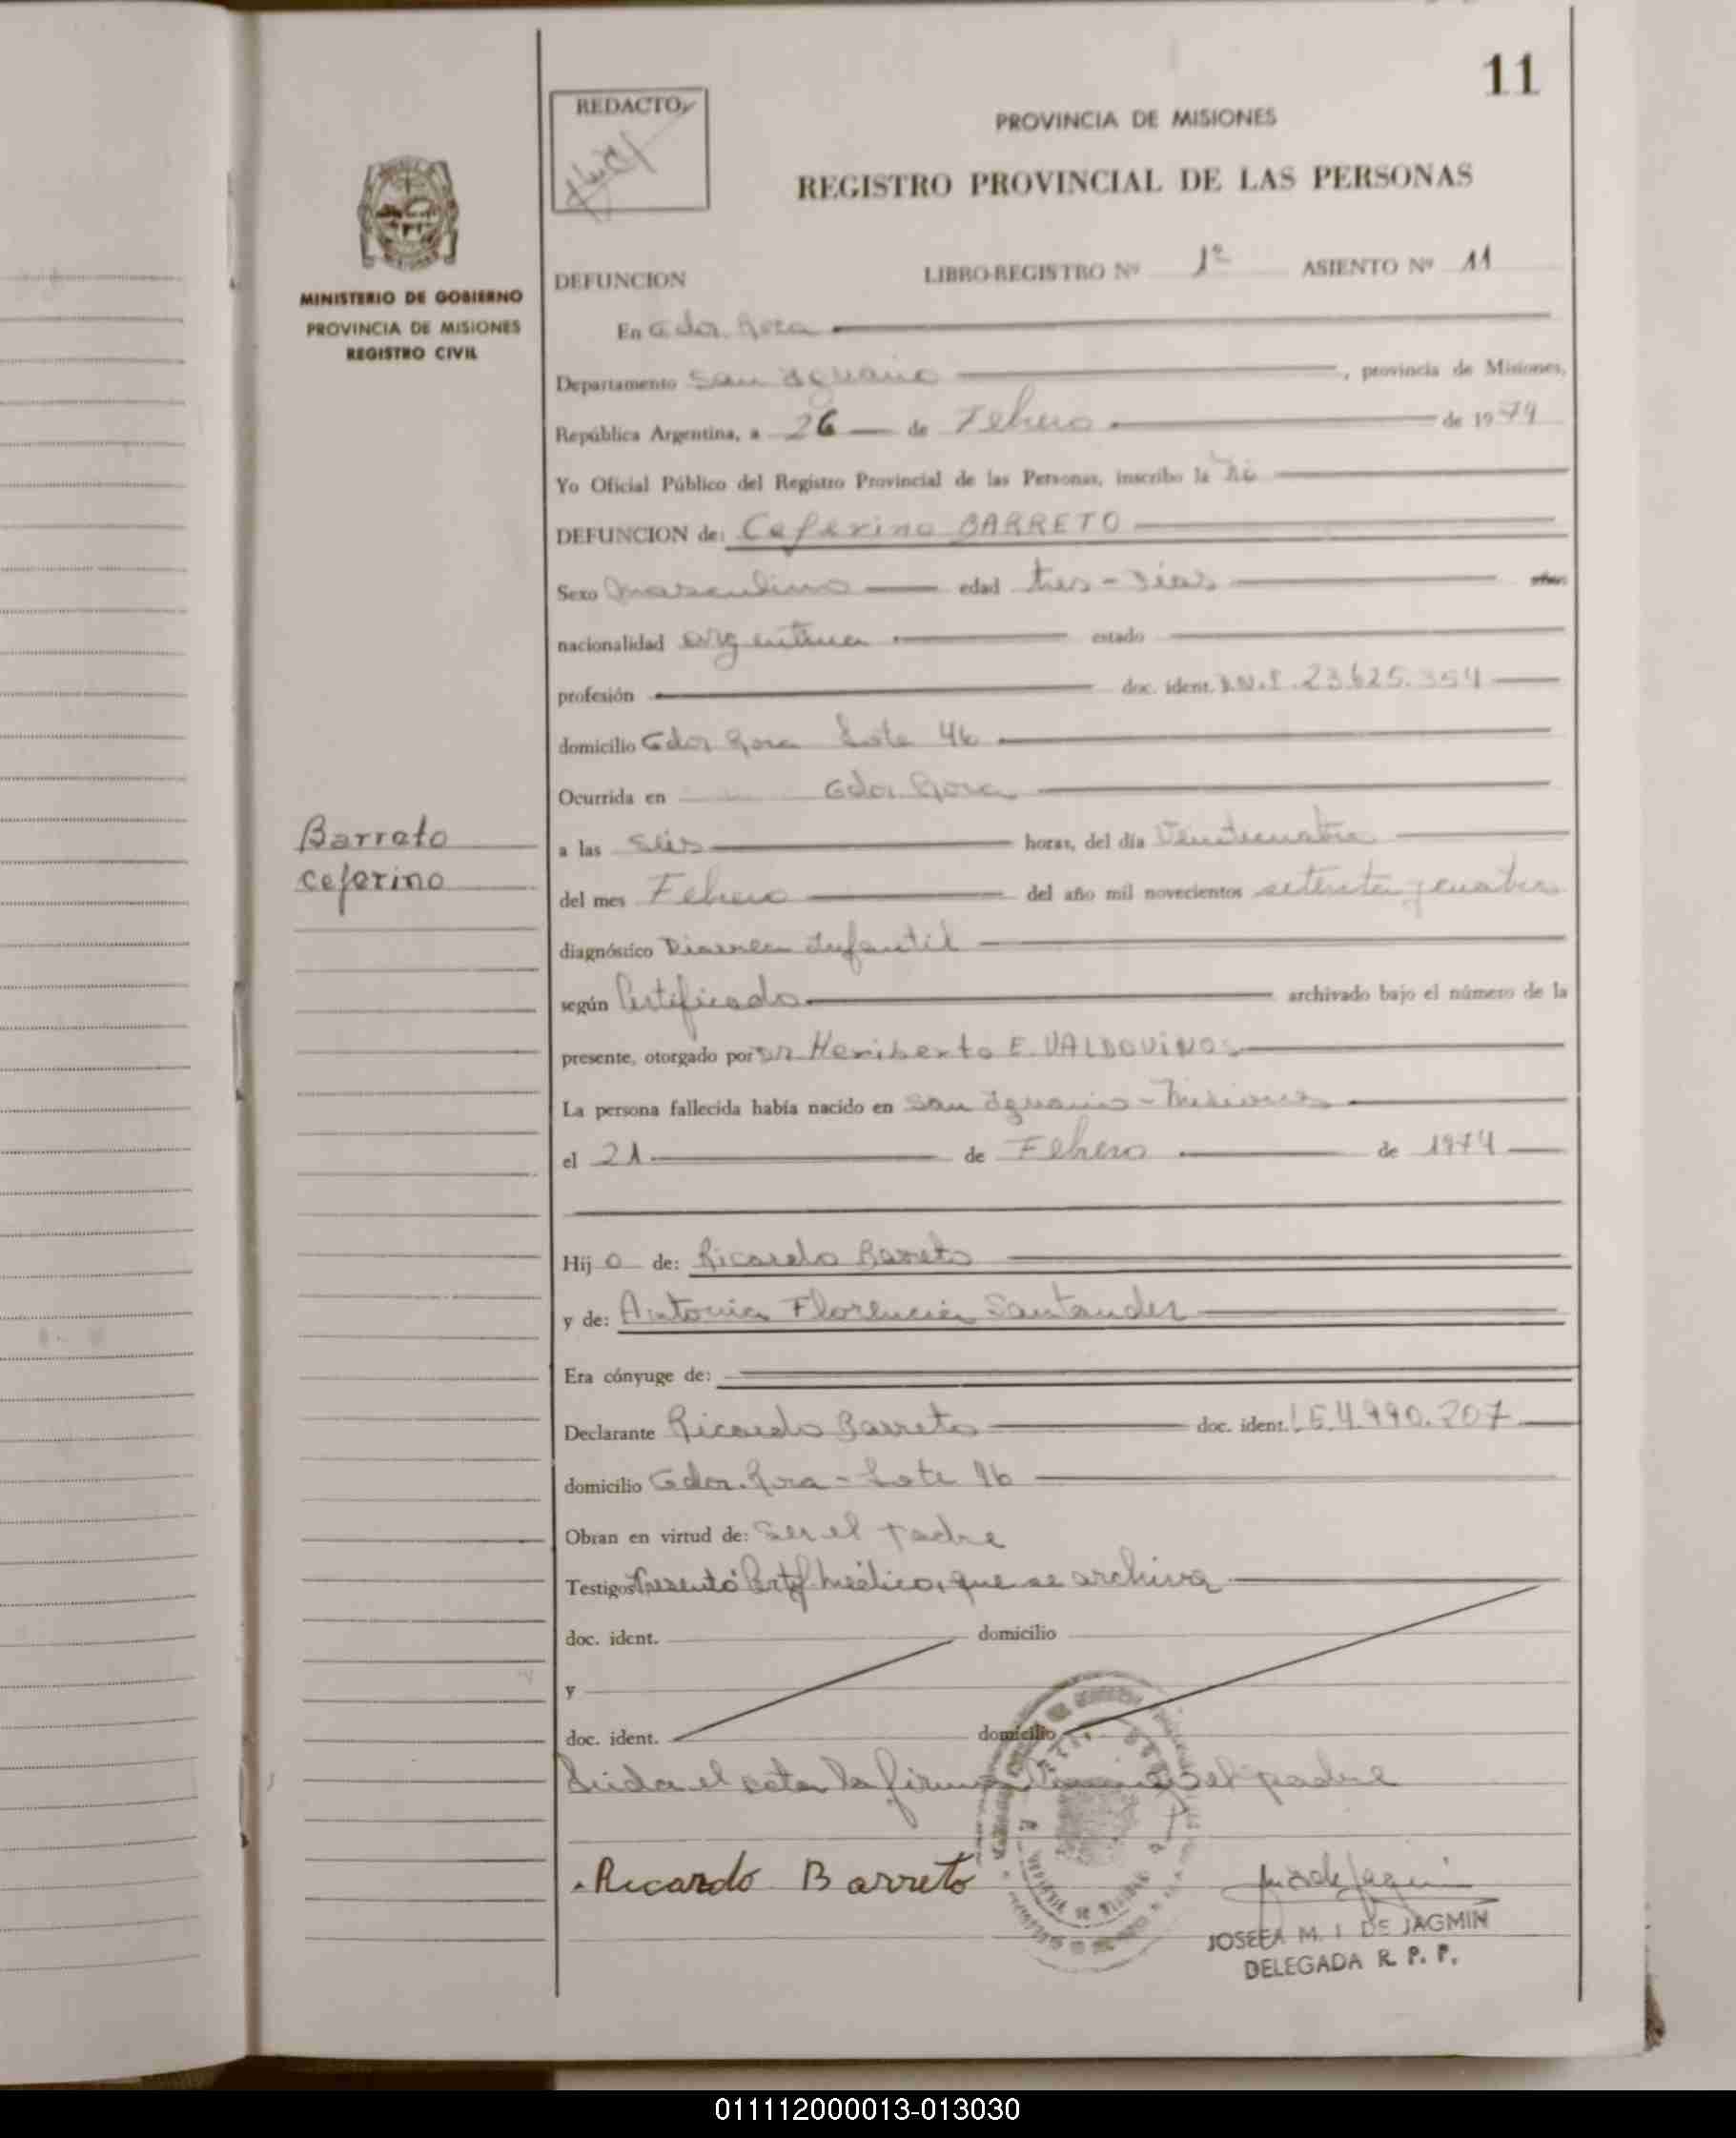 11
REDACTO
PROVINCIA DE MISIONES
REGISTRO PROVINCIAL DE LAS PERSONAS
MINISTERIO DE GOBIERNO
PROVINCIA DE MISIONES
REGISTRO CIVIL
DEFUNCION LIBRO-REGISTRO Nº 1º ASIENTO Nº 11
En Gdor. Roca
Departamento San Ignacio, provincia de Misiones,
República Argentina, a 26 de Febrero de 1974
Yo Oficial Público del Registro Provincial de las Personas, inscribo la
DEFUNCION de: Ceferino BARRETO
Sexo masculino edad tres - días
nacionalidad argentina estado
profesión doc. ident. D.N.I. 23.625.354
domicilio Gdor Roca Lote 46
Ocurrida en Gdor Roca
Barreto
Ceferino
a las seis horas, del día Veinticuatro
del mes Febrero del año mil novecientos setenta y cuatro
diagnóstico Diarrea Infantil
según Certificado archivado bajo el número de la
presente, otorgado por Dr Heriberto E. VALDOVINOS
La persona fallecida había nacido en San Ignacio - Misiones
el 21 de Febrero de 1974
Hijo de: Ricardo Barreto
y de: Antonia Florencia Santander
Era cónyuge de:
Declarante Ricardo Barreto doc. ident. L.E. 4.990.207
domicilio Gdor. Roca - Lote 46
Obran en virtud de: Ser el padre
Testigos Presentó Certif medico, que se archiva
doc. ident. domicilio
y
doc. ident. domicilio
Leida el acta la firma el padre
Ricardo Barreto
JOSEFA M. I. DE JAGMIN
DELEGADA R. P. P.
011112000013-013030